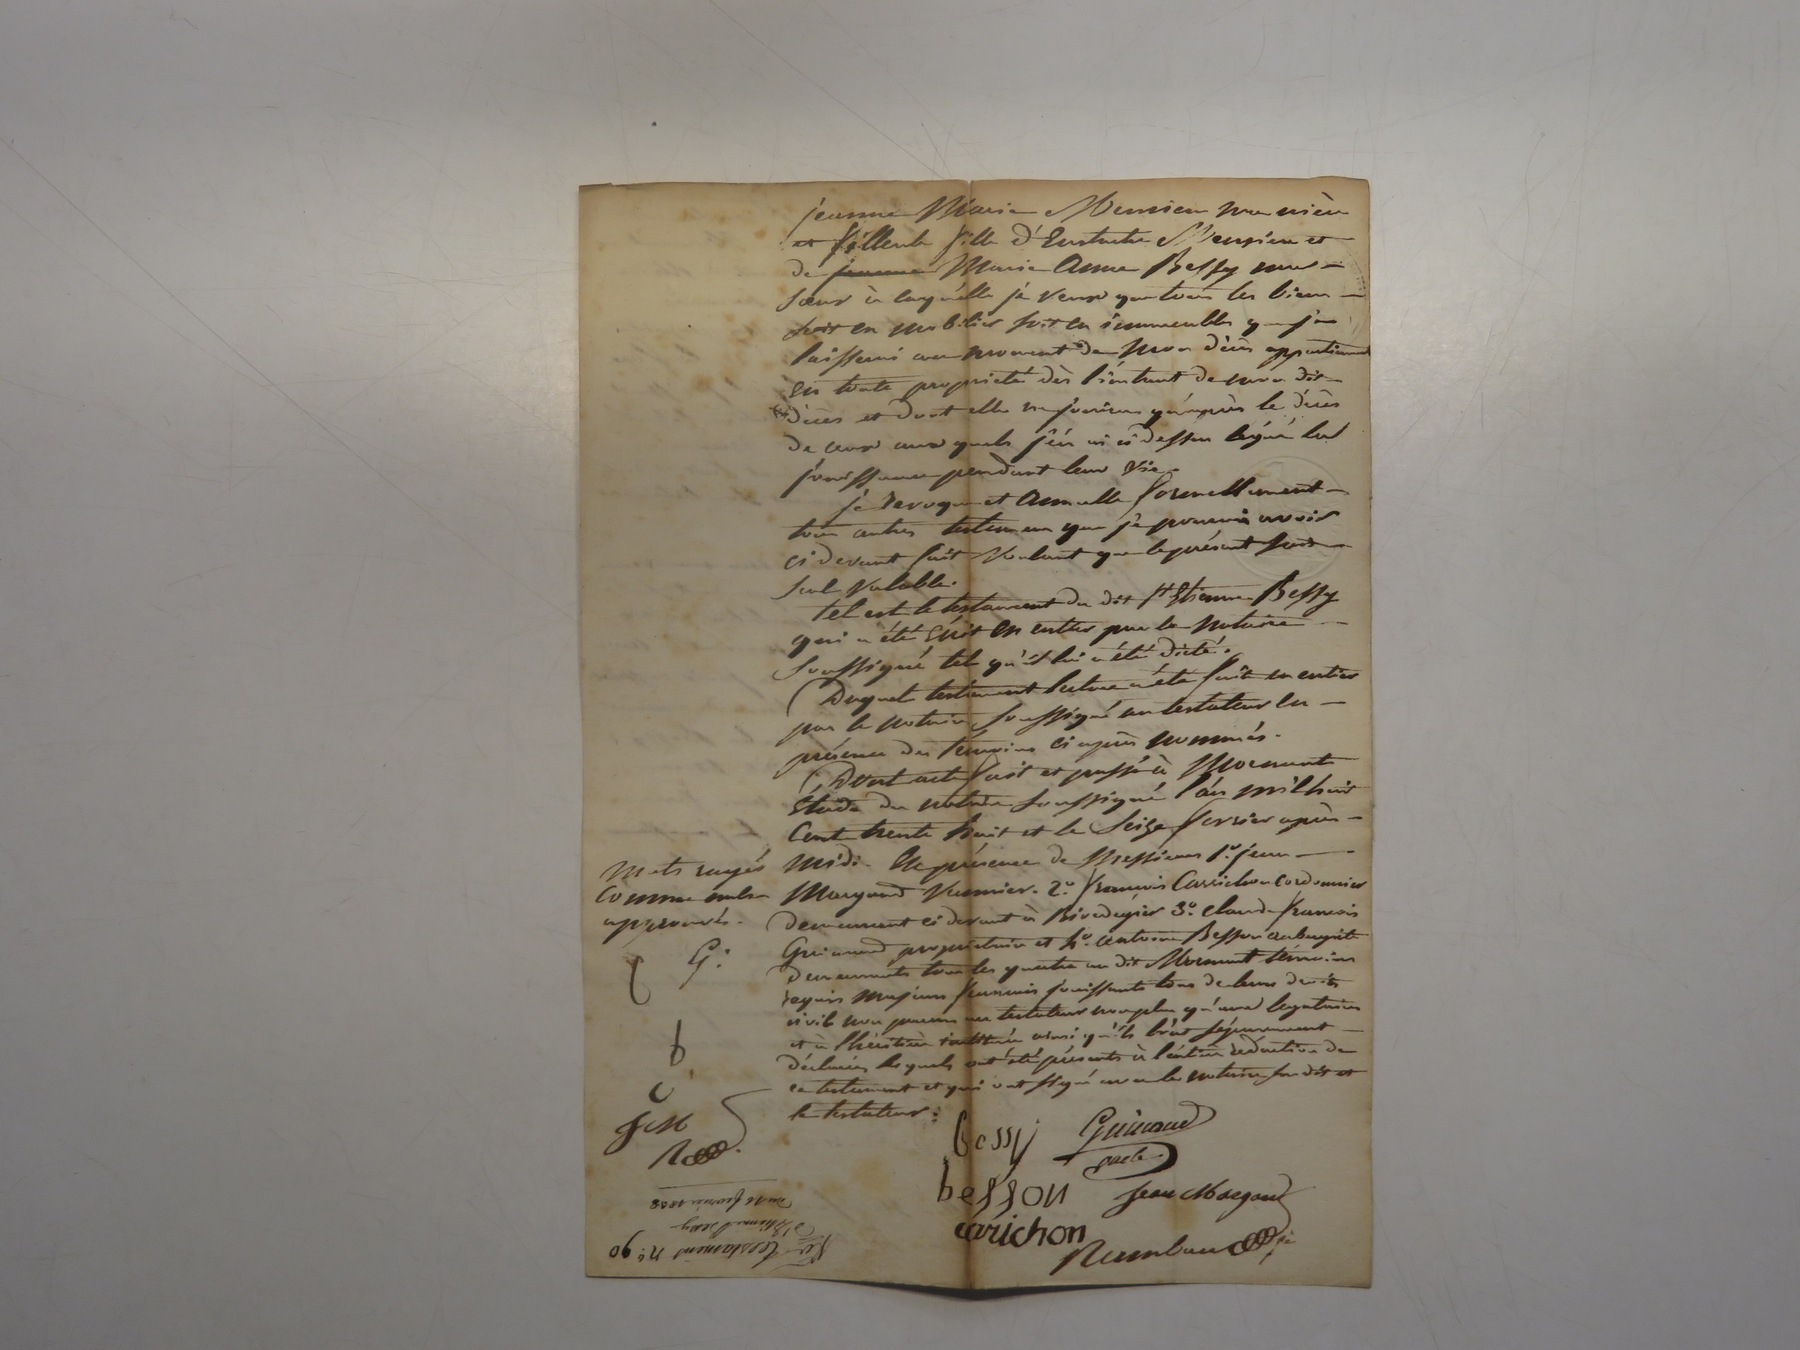 jeanne Marie Mensieu ma nièce
et fillieule fille d'Eustache Mensieu et
de jeanne Marie Anne Bessy ma
sœur à laquelle je veux que tous les biens
soit en mobilier soit en immeubles que je
laisserai au moment de mon décès appartiennent
en toute propriété dès l'instant de mon dit
décès et dont elle ne jouira qu'après le décès
de ceux aux quels j'en ai ci dessus légué la
jouissance pendant leur vie.
je revoque et annulle formellement
tous autres testamens que je pourrais avoir
ci devant fait voulant que le présent soit
seul valable.
tel est le testament du dit st Etienne Bessy
qui a été écrit en entier par le notaire
soussigné tel qu'il lui a été dicté.
Duquel testament lecture a été faite en entier
par le notaire soussigné au testateur en
présence des témoins ci après nommés.
Dont acte fait et passé à Mornant
Etude du notaire soussigné l'an mil huit
cent trente huit et le seize fevrier après
midi. En présence de Messieurs 1º jean
Margand 2º françois Carrichon cordonnier
demeurant ci devant à Rivedegier 3º claude françois
Guinand propriétaire et 4º antoine Besson aubergiste
demeurants tous les quatre au dit Mornant témoins
requis majeurs français jouissants tous de leurs droits
civils non parens au testateur non plus qu'aux légataires
et à l'héritière instituée ainsi qu'ils l'ont séparement
déclarés lesquels ont été présents à l'entière redaction de
ce testament et qui ont signé avec le notaire susdit et
le testateur:
mots rayés
comme nuls
approuvés.
G:
b
b
C
J M
R
bessy Guinand
besson Jean Margand
carichon
Rambaud
testament nº 90
d'Etienne Bessy
du 16 fevrier 1838